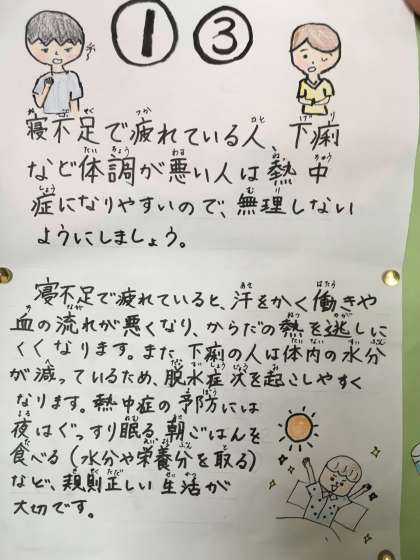 ① ③
寝不足で疲れている人、下痢
など体調が悪い人は熱中
症になりやすいので、無理しない
ようにしましょう。
寝不足で疲れていると、汗をかく働きや
血の流れが悪くなり、からだの熱を逃しに
くくなります。また、下痢の人は体内の水分
が減っているため、脱水症状を起こしやすく
なります。熱中症の予防には
夜はぐっすり眠る、朝ごはんを
食べる(水分や栄養分を取る)
など、規則正しい生活が
大切です。